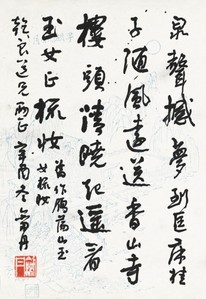 泉聲撼夢到匡床桂
子随風遠送香山寺
樓頭清曉起遥看
玉女正梳妝
作雁蕩山玉
女梳妝
道兄两正 辛酉冬